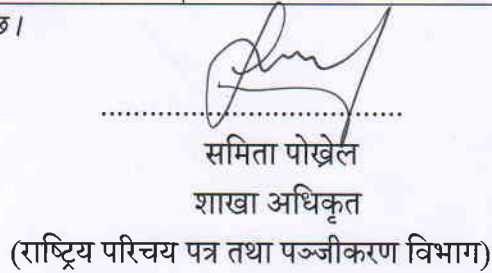 छ।
समिता पोख्रेल
शाखा अधिकृत
(राष्ट्रिय परिचय पत्र तथा पञ्जीकरण विभाग)